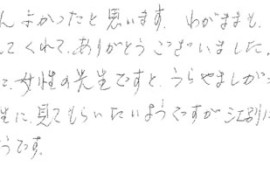 んよかったと思います。わがままも、
してくれて、ありがとうございました。
に、女性の先生ですと、うらやましがっ
生に、見てもらいたいようですが江別に
うです。